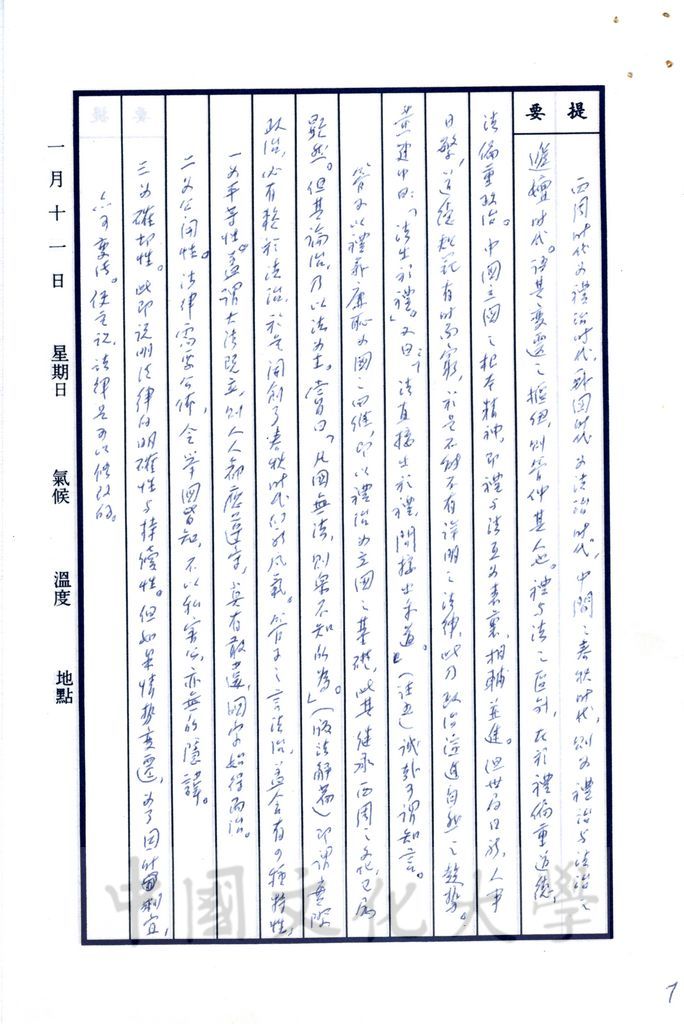 提要
西周時代為禮治時代,戰國時代為法治時代,中間之春秋時代,則為禮治與法治之
遞嬗時代。語其變遷之樞紐,則管仲其人也。禮與法之區別,在於禮偏重道德,
法偏重政治。中國立國之根本精神,即禮與法互為表裏,相輔並進。但世局日新,人事
日繁,道德軌範有時而窮,於是不能不有詳明之法律,此乃政治演進自然之趨勢。
黃建中曰:「法生於禮。」又曰:「法直接出於禮,間接出於道。」(註五)誠哉可謂知言。
管子以禮義廉恥為國之四維,即以禮治為立國之基礎,此其繼承西周之文化,已為
顯然。但其論治,乃以法為主。嘗曰:「凡國無法,則眾不知所為」(版法解篇)即謂實際
政治,必有賴於法治,於是開創了春秋時代的新風氣。管子之言法治,蓋含有四種特性,
一為平等性。蓋謂大法既立,則人人都應遵守,莫有敢違,國家始得而治。
二為公開性。法律需要公佈,令舉國皆知,不以私害公,亦無所隱諱。
三為確切性。此即說明法律的明確性與持續性。但如果情勢變遷,為了因時制宜,
亦可變法。換言之,法律是可以修改的。
一月十一日 星期日 氣候 溫度 地點
中國文化大學
7